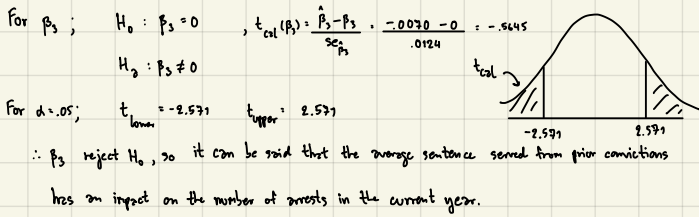 For β₃ ; H₀ : β₃ = 0 , t_cal (β₃) = (β̂₃ - β₃) / se_β̂₃ = (-.0070 - 0) / .0124 = -.5645
H₂ : β₃ ≠ 0
t_cal
For α = .05; t_lower = -2.571 t_upper = 2.571
-2.571 2.571
∴ β₃ reject H₀, so it can be said that the average sentence served from prior convictions
has an impact on the number of arrests in the current year.